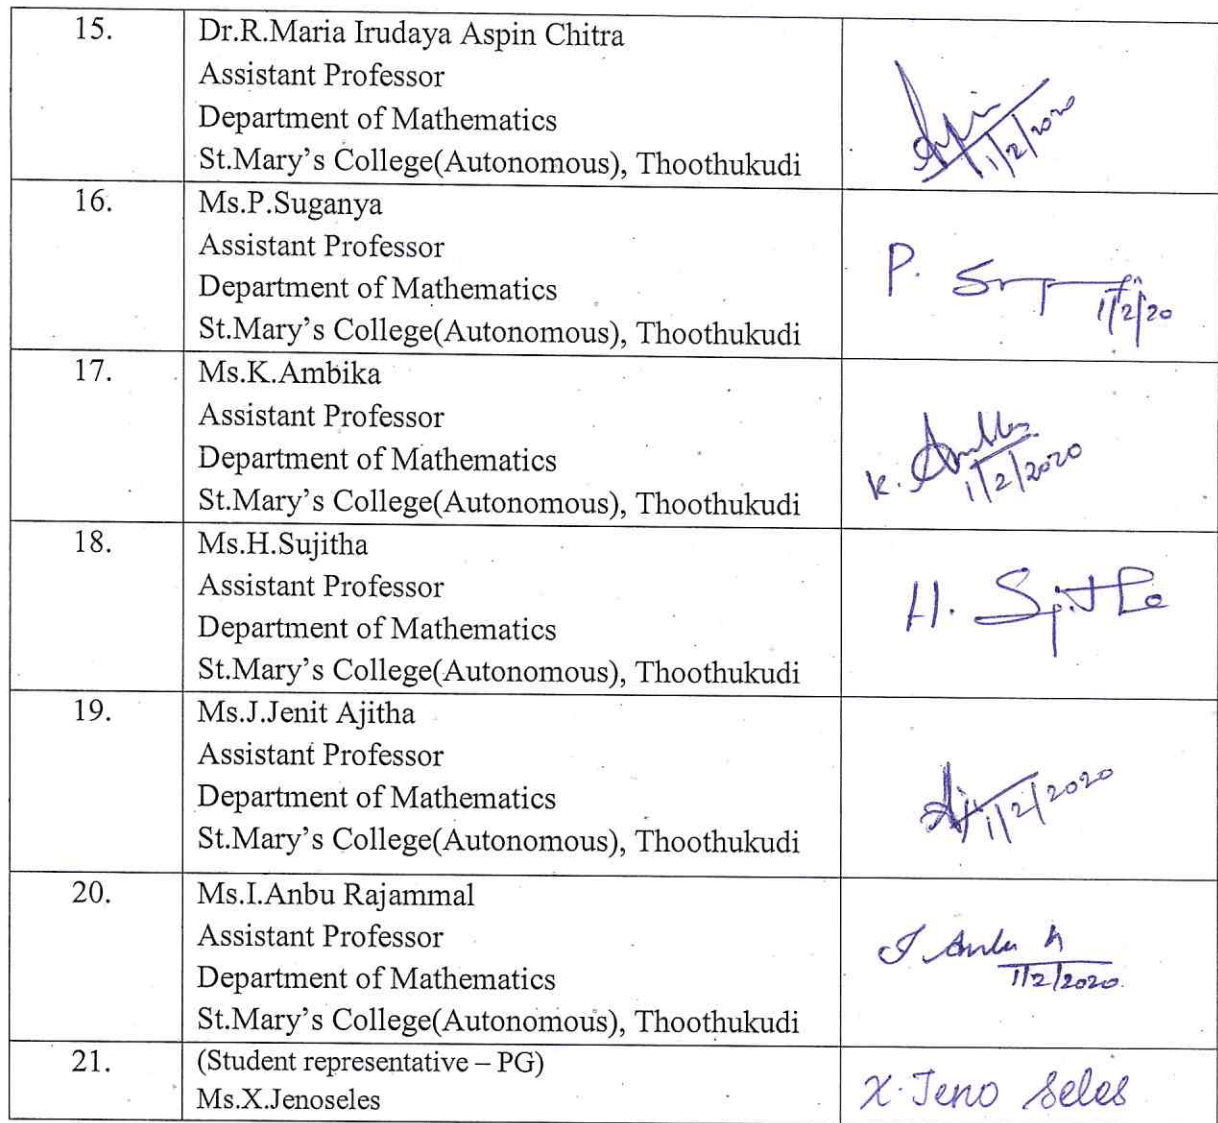 15.
Dr.R.Maria Irudaya Aspin Chitra
Assistant Professor
Department of Mathematics
St.Mary's College(Autonomous), Thoothukudi
1/2/2020
16.
Ms.P.Suganya
Assistant Professor
Department of Mathematics
St.Mary's College(Autonomous), Thoothukudi
P.
1/2/20
17.
Ms.K.Ambika
Assistant Professor
Department of Mathematics
St.Mary's College(Autonomous), Thoothukudi
K.
1/2/2020
18.
Ms.H.Sujitha
Assistant Professor
Department of Mathematics
St.Mary's College(Autonomous), Thoothukudi
H.
19.
Ms.J.Jenit Ajitha
Assistant Professor
Department of Mathematics
St.Mary's College(Autonomous), Thoothukudi
1/2/2020
20.
Ms.I.Anbu Rajammal
Assistant Professor
Department of Mathematics
St.Mary's College(Autonomous), Thoothukudi
1/2/2020
21.
(Student representative – PG)
Ms.X.Jenoseles
X.Jeno Seles